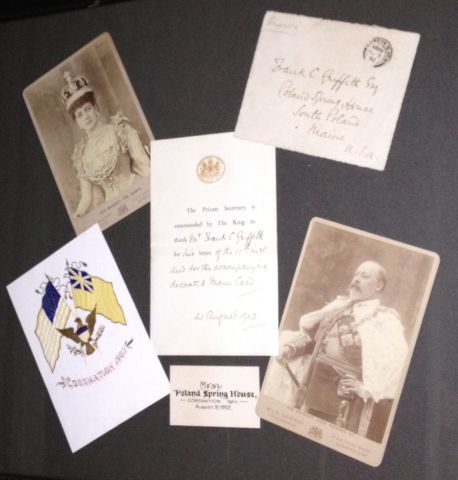 America
Frank C. Griffith Esq
Poland Spring House
South Poland
Maine
U.S.A.
The Private Secretary is
commanded by The King to
thank Mr. Frank C. Griffith
for his letter of the 11th inst
and for the accompanying
decorated Menu Card.
21 August 1902.
CORONATION 1902
MENU
Poland Spring House,
CORONATION DAY
AUGUST 9, 1902.